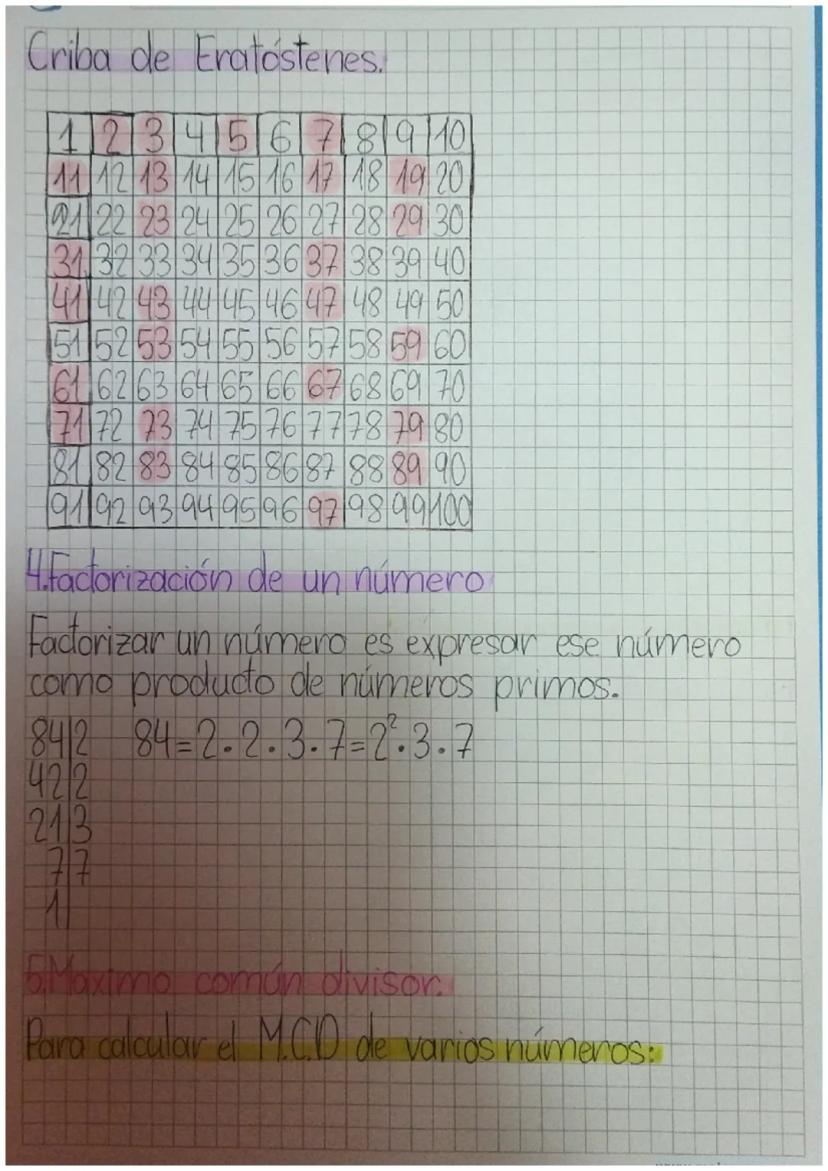 Criba de Eratóstenes.
1 2 3 4 5 6 7 8 9 10
11 12 13 14 15 16 17 18 19 20
21 22 23 24 25 26 27 28 29 30
31 32 33 34 35 36 37 38 39 40
41 42 43 44 45 46 47 48 49 50
51 52 53 54 55 56 57 58 59 60
61 62 63 64 65 66 67 68 69 70
71 72 73 74 75 76 77 78 79 80
81 82 83 84 85 86 87 88 89 90
91 92 93 94 95 96 97 98 99 100
4. Factorización de un número
Factorizar un número es expresar ese número
como producto de números primos.
84|2 84=2·2·3·7=2²·3·7
42|2
21|3
7|7
1|
5. Maximo común divisor.
Para calcular el M.C.D de varios números: